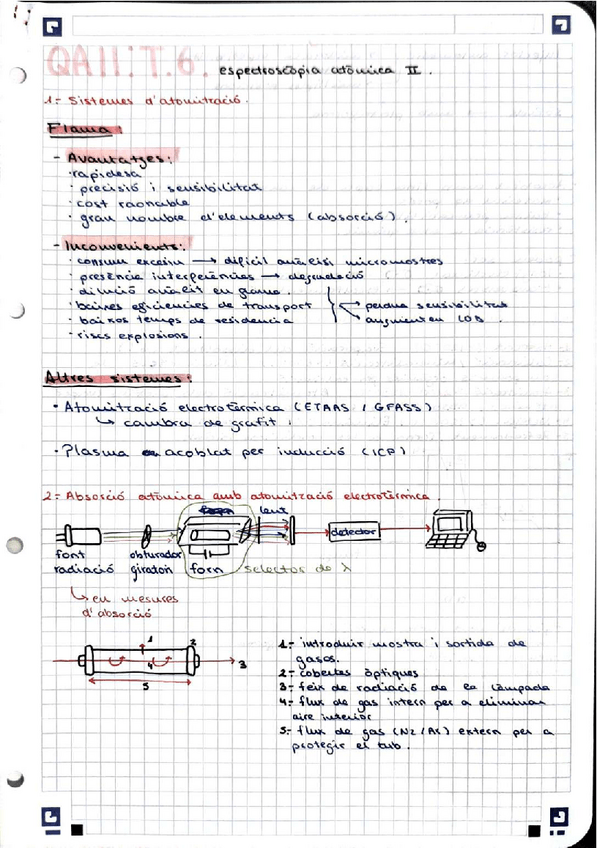 QAII: T.6. espectroscòpia atòmica II.
1.- Sistemes d'atomització.
Flama:
- Avantatges:
· rapidesa
· precisió i sensibilitat
· cost raonable
· gran nombre d'elements (absorció).
- Inconvenients:
· consum excessiu → difícil anàlisi micromostres
· presència interferències → degradació
· dilució anàlit en flama.
· baixes eficiencies de transport → perdua sensibilitat
· baixos temps de residencia → augmenten LOD.
· riscs explosions.
Altres sistemes:
· Atomització electrotèrmica (ETAAS / GFASS)
↳ cambra de grafit.
· Plasma acoblat per inducció (ICP)
2- Absorció atòmica amb atomització electrotèrmica.
lent
detector
font radiació
obturador giratori
forn
selector de λ
↳ en mesures
d'absorció
1 2
4 3
5
1- introduir mostra i sortida de
gasos.
2- cobertes òptiques
3- feix de radiació de la làmpada
4- flux de gas intern per a eliminar
aire interior
5- flux de gas (N2 / Ar) extern per a
protegir el tub.